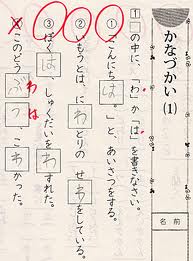 かなづかい(1)
名前
1 □の中に、「わ」か「は」を書きなさい。
① 「こんにちは。」と、あいさつをする。
② いもうとは、にわとりの せわをしている。
③ ぼくは、しゅくだいをわすれた。
わ は
このどうぶつ、こわかった。